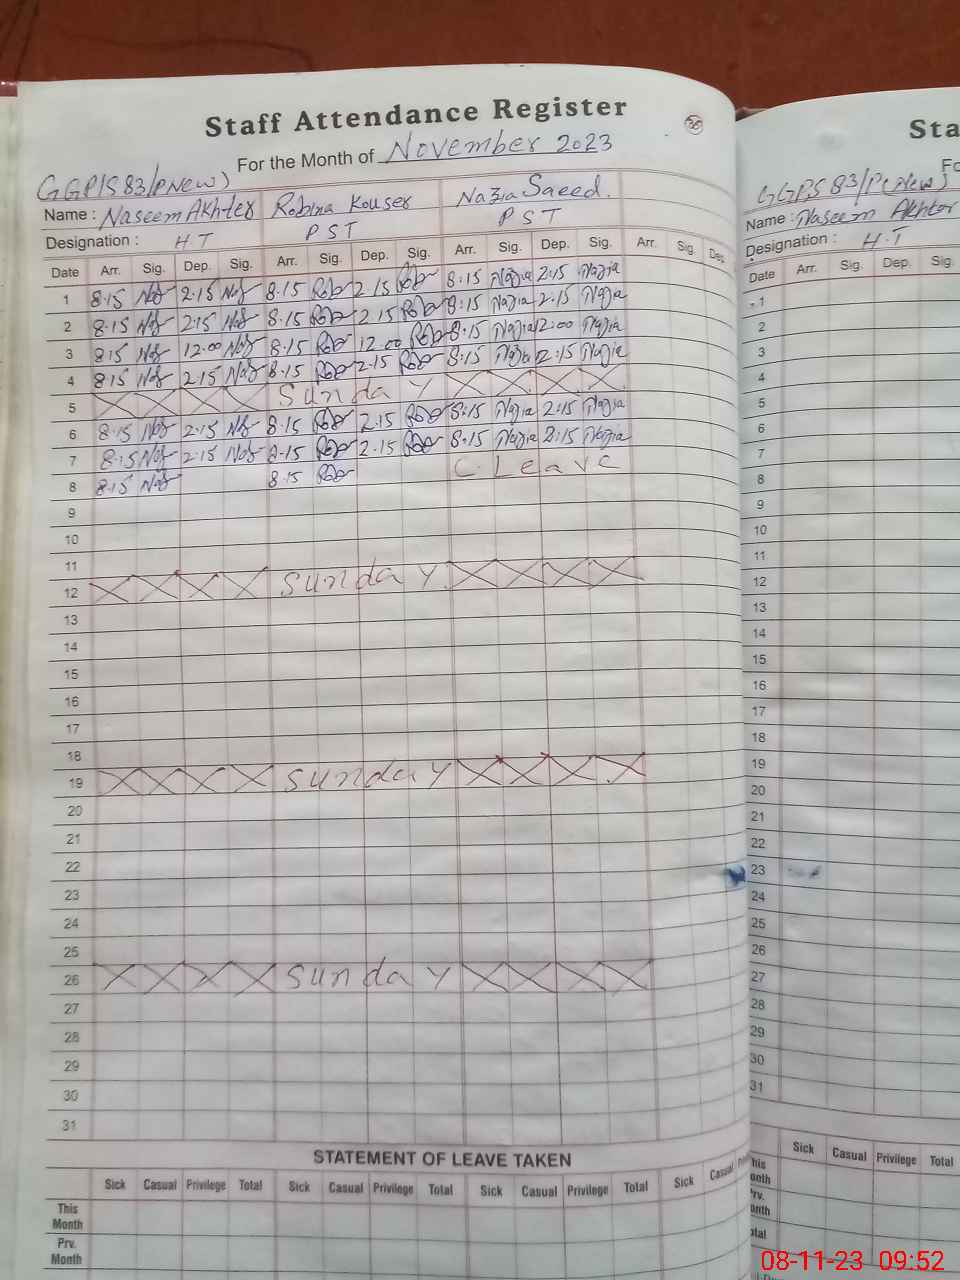 Staff Attendance Register
For the Month of November 2023
GGP/S 83/P(New)
Name : Naseem Akhter Robina Kouser Nazia Saeed.
Designation : H.T PST PST
Date Arr. Sig. Dep. Sig. Arr. Sig. Dep. Sig. Arr. Sig. Dep. Sig. Arr. Sig. Dep.
1 8.15 Nas 2.15 Nas 8.15 Rob 2.15 Rob 8:15 Nazia 2:15 Nazia
2 8.15 Nas 2.15 Nas 8.15 Rob 2.15 Rob 8:15 Nazia 2:15 Nazia
3 8.15 Nas 12.00 Nas 8.15 Rob 12.00 Rob 8:15 Nazia 12:00 Nazia
4 8.15 Nas 2.15 Nas 8.15 Rob 2.15 Rob 8:15 Nazia 2:15 Nazia
5 Sunday
6 8.15 Nas 2.15 Nas 8.15 Rob 2.15 Rob 8:15 Nazia 2:15 Nazia
7 8.15 Nas 2.15 Nas 8.15 Rob 2.15 Rob 8:15 Nazia 2:15 Nazia
8 8.15 Nas 8.15 Rob C. Leave
9
10
11
12 Sunday
13
14
15
16
17
18
19 Sunday
20
21
22
23
24
25
26 Sunday
27
28
29
30
31
STATEMENT OF LEAVE TAKEN
Sick Casual Privilege Total Sick Casual Privilege Total Sick Casual Privilege Total Sick Casual
This Month
Prv. Month
Sta
GGPS 83/P(New)
Name : Naseem Akhter
Designation : H.T
Date Arr. Sig. Dep. Sig.
1
2
3
4
5
6
7
8
9
10
11
12
13
14
15
16
17
18
19
20
21
22
23
24
25
26
27
28
29
30
31
Sick Casual Privilege Total
08-11-23 09:52